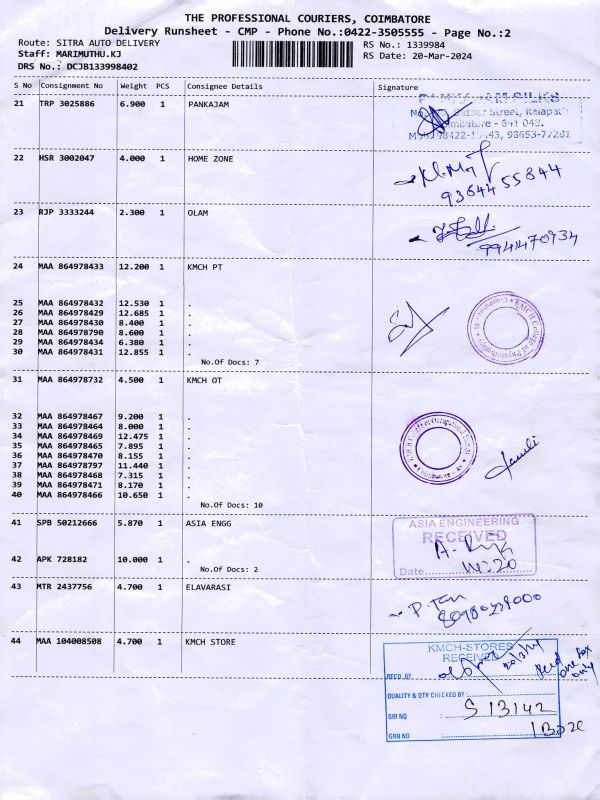 THE PROFESSIONAL COURIERS, COIMBATORE
Delivery Runsheet - CMP - Phone No.:0422-3505555 - Page No.:2
Route: SITRA AUTO DELIVERY
RS No.: 1339984
Staff: MARIMUTHU.KJ
RS Date: 20-Mar-2024
DRS No.: DCJB133998402
S No Consignment No Weight PCS Consignee Details Signature
21 TRP 3025886 6.900 1 PANKAJAM
Bazaar Street, Kalapati
Coimbatore - 641 048.
22 HSR 3002047 4.000 1 HOME ZONE
9364455844
23 RJP 3333244 2.300 1 OLAM
9941470934
24 MAA 864978433 12.200 1 KMCH PT
25 MAA 864978432 12.530 1 .
26 MAA 864978429 12.685 1 .
27 MAA 864978430 8.400 1 .
28 MAA 864978790 8.600 1 .
29 MAA 864978434 6.380 1 .
30 MAA 864978431 12.855 1 .
No.Of Docs: 7
31 MAA 864978732 4.500 1 KMCH OT
32 MAA 864978467 9.200 1 .
33 MAA 864978464 8.000 1 .
34 MAA 864978469 12.475 1 .
35 MAA 864978465 7.895 1 .
36 MAA 864978470 8.155 1 .
37 MAA 864978797 11.440 1 .
38 MAA 864978468 7.315 1 .
39 MAA 864978471 8.170 1 .
40 MAA 864978466 10.650 1 .
No.Of Docs: 10
41 SPB 50212666 5.870 1 ASIA ENGG
ASIA ENGINEERING
RECEIVED
Date
42 APK 728182 10.000 1 .
No.Of Docs: 2
43 MTR 2437756 4.700 1 ELAVARASI
44 MAA 104008508 4.700 1 KMCH STORE
KMCH-STORES
RECEIVED
20/3/24
one Box
only
RECD. BY
QUALITY & QTY CHECKED BY :
GIR NO : S 13142
GRN NO :